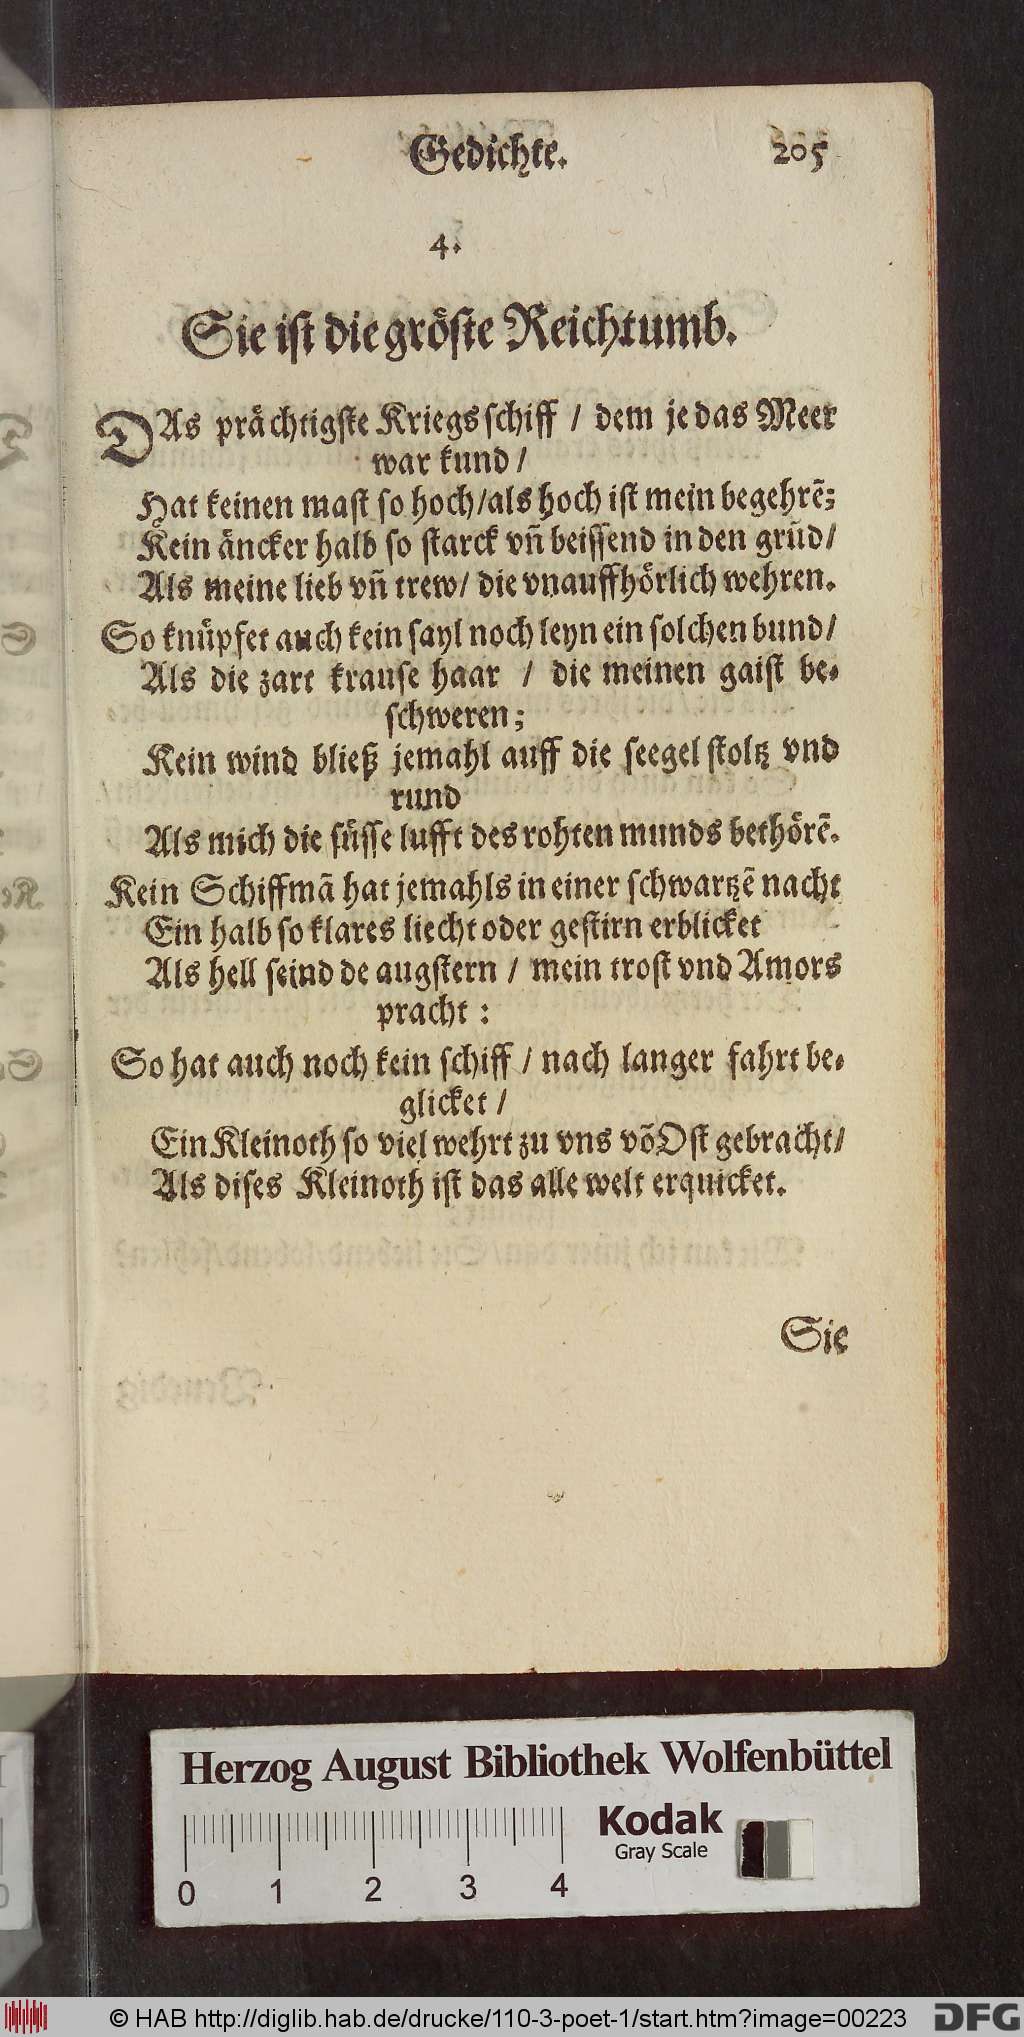 Gedichte. 205
4.
Sie ist die gröste Reichtumb.
DAs prächtigste Kriegsschiff / dem je das Meer
war kund /
Hat keinen mast so hoch/als hoch ist mein begehrẽ;
Kein äncker halb so starck vñ beissend in den grũd/
Als meine lieb vñ trew/ die vnauffhörlich wehren.
So knüpfet auch kein sayl noch leyn ein solchen bund/
Als die zart krause haar / die meinen gaist be-
schweren;
Kein wind bließ jemahl auff die seegel stoltz vnd
rund
Als mich die süsse lufft des rohten munds bethörẽ.
Kein Schiffmã hat jemahls in einer schwartzẽ nacht
Ein halb so klares liecht oder gestirn erblicket
Als hell seind de augstern / mein trost vnd Amors
pracht :
So hat auch noch kein schiff / nach langer fahrt be-
glicket /
Ein Kleinoth so viel wehrt zu vns võ Ost gebracht/
Als dises Kleinoth ist das alle welt erquicket.
Sie
Herzog August Bibliothek Wolfenbüttel
Kodak
Gray Scale
0 1 2 3 4
© HAB http://diglib.hab.de/drucke/110-3-poet-1/start.htm?image=00223
DFG